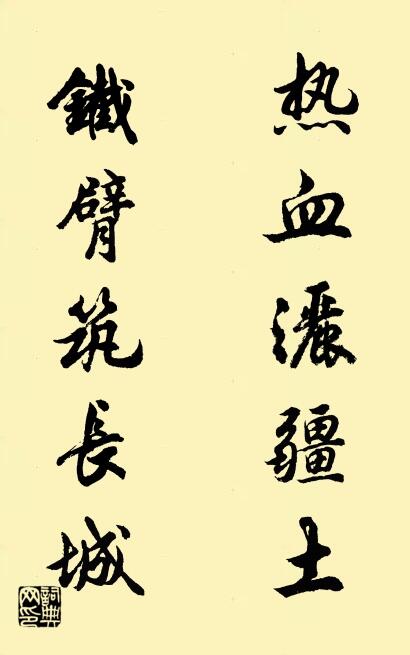 热血灑疆土
鐵臂筑長城
詞典网印